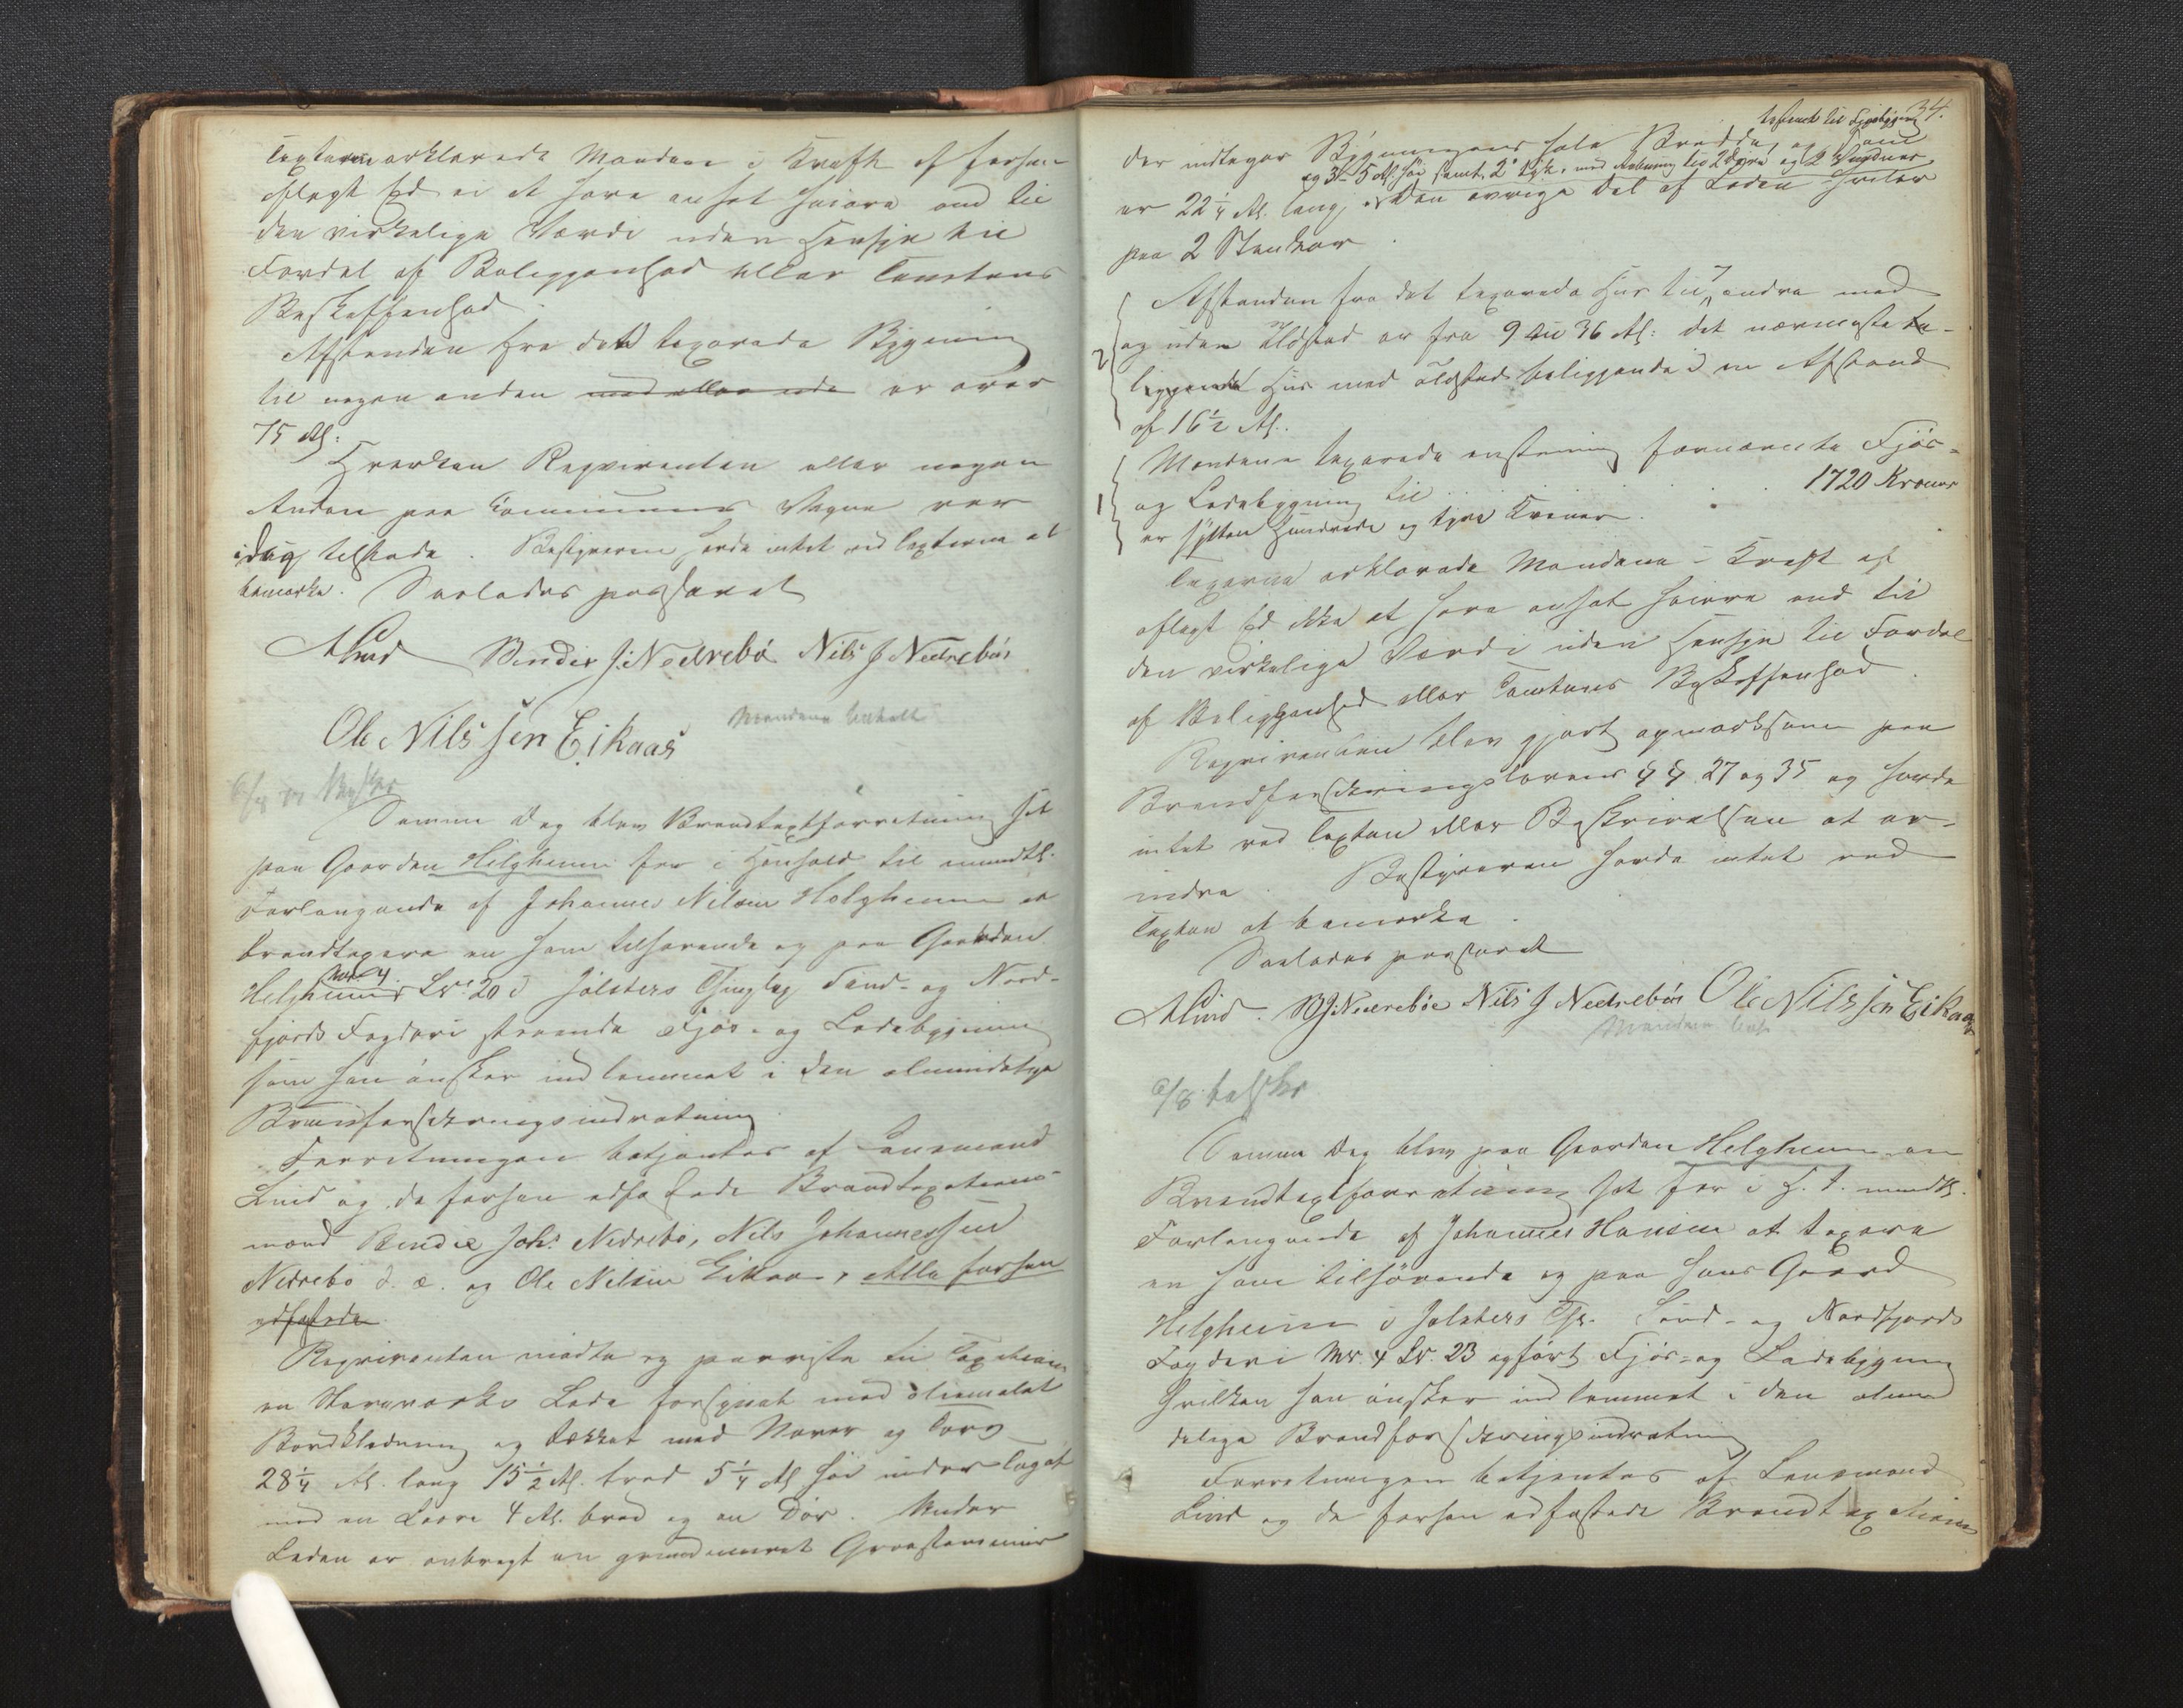 Taxterne erklærede Mændene i Kraft af forhen
aflagt Ed ei at have ansat høiere end til
den virkelige Værdi uden Hensyn til
Fordel af Beliggenhed eller Tomtens
Beskaffenhed
Afstanden fra den taxerede Bygning
til nogen anden med eller uden er over
75 Al:
Hverken Reqvirenten eller nogen
Anden paa Kommunens Vegne var
idag tilstede. Bestyreren havde intet ved Taxterne at
bemærke. Saaledes passeret
ALind Bendix J. Nedrebø Nils J Nedrebøe
Ole Nilssen Eikaas Mændene betalt
Samme Dag blev Brandtaxtforretning sat
paa Gaarden Helgheim for i Henhold til mundtl.
Forlangende af Johannes Nilsen Helgheim at
brandtaxere en ham tilhørende og paa Gaarden
Mat. 4
Helgheims Lr. 20 i Jølsters Thinglag Sønd- og Nord-
fjords Fogderi staaende Fjøs- og Ladebygning
som han ønsker indlemmet i den almindelige
Brandforsikringsindretning
Forretningen betjentes af Lensmand
Lind og de forhen edfæstede Brandtaxations-
mænd Bendix Johs. Nedrebø, Nils Johannessen
Nedrebø d. æ. og Ole Nilsen Eikaas, Alle forhen
edfæstede
Reqvirenten mødte og paaviste til Taxation
en Stavværks Lade forsynet med oliemalet
Bordklædning og tækket med Næver og Torv
28 1/4 Al. lang 15 1/2 Al. bred 5 1/4 Al høi under Taget
med en Laave 4 Al. bred og en Dør. Under
Laden er anbragt en grundmuret Graastensmur
34.
bestemt til Fjøsbygning
der indtager Bygningens hele Bredde, og som
og 3- 5 Al. høi samt 2" tyk, med Aabning til 2 Døre og 2 Vinduer,
er 22 1/4 Al. lang, Den øvrige Del af Laden hviler
paa 2 Stenkar.
Afstanden fra det taxerede Hus til 7 andre med
og uden Ildsted er fra 9 til 36 Al: det nærmeste be-
2 liggende Hus med Ildsted beliggende i en Afstand
af 16 1/2 Al.
Mændene taxerede enstemmig fornævnte Fjøs-
1 og Ladebygning til . . . . . 1720 Kroner
er sytten Hundrede og tyve Kroner.
Taxerne erklærede Mændene i Kraft af
aflagt Ed ikke at have ansat høiere end til
den virkelige Værdi uden Hensyn til Fordel
af Beliggenhed eller Tomtens Beskaffenhed.
Reqvirenten blev gjort opmærksom paa
Brandforsikringslovens §§ 27 og 35 og havde
intet ved Taxten eller Beskrivelsen at er-
indre. Bestyreren havde intet ved
Taxten at bemærke.
Saaledes passeret
ALind. BJNedrebøe Nils J Nedrebøe Ole Nilssen Eikaas
Mændene bet.
6/8 beskr
Samme Dag blev paa Gaarden Helgheim en
Brandtaxtforretning sat for i H. t. mundtl.
Forlangende af Johannes Hansen at taxere
en ham tilhørende og paa hans Gaard
Helgheim i Jølsters Thl. Sønd- og Nordfjords
Fogderi Mr. 4 Lr. 23 opført Fjøs- og Ladebygning
hvilken han ønsker indlemmet i den almin
delige Brandforsikringsindretning
Forretningen betjentes af Lensmand
Lind og de forhen edfæstede Brandtaxations